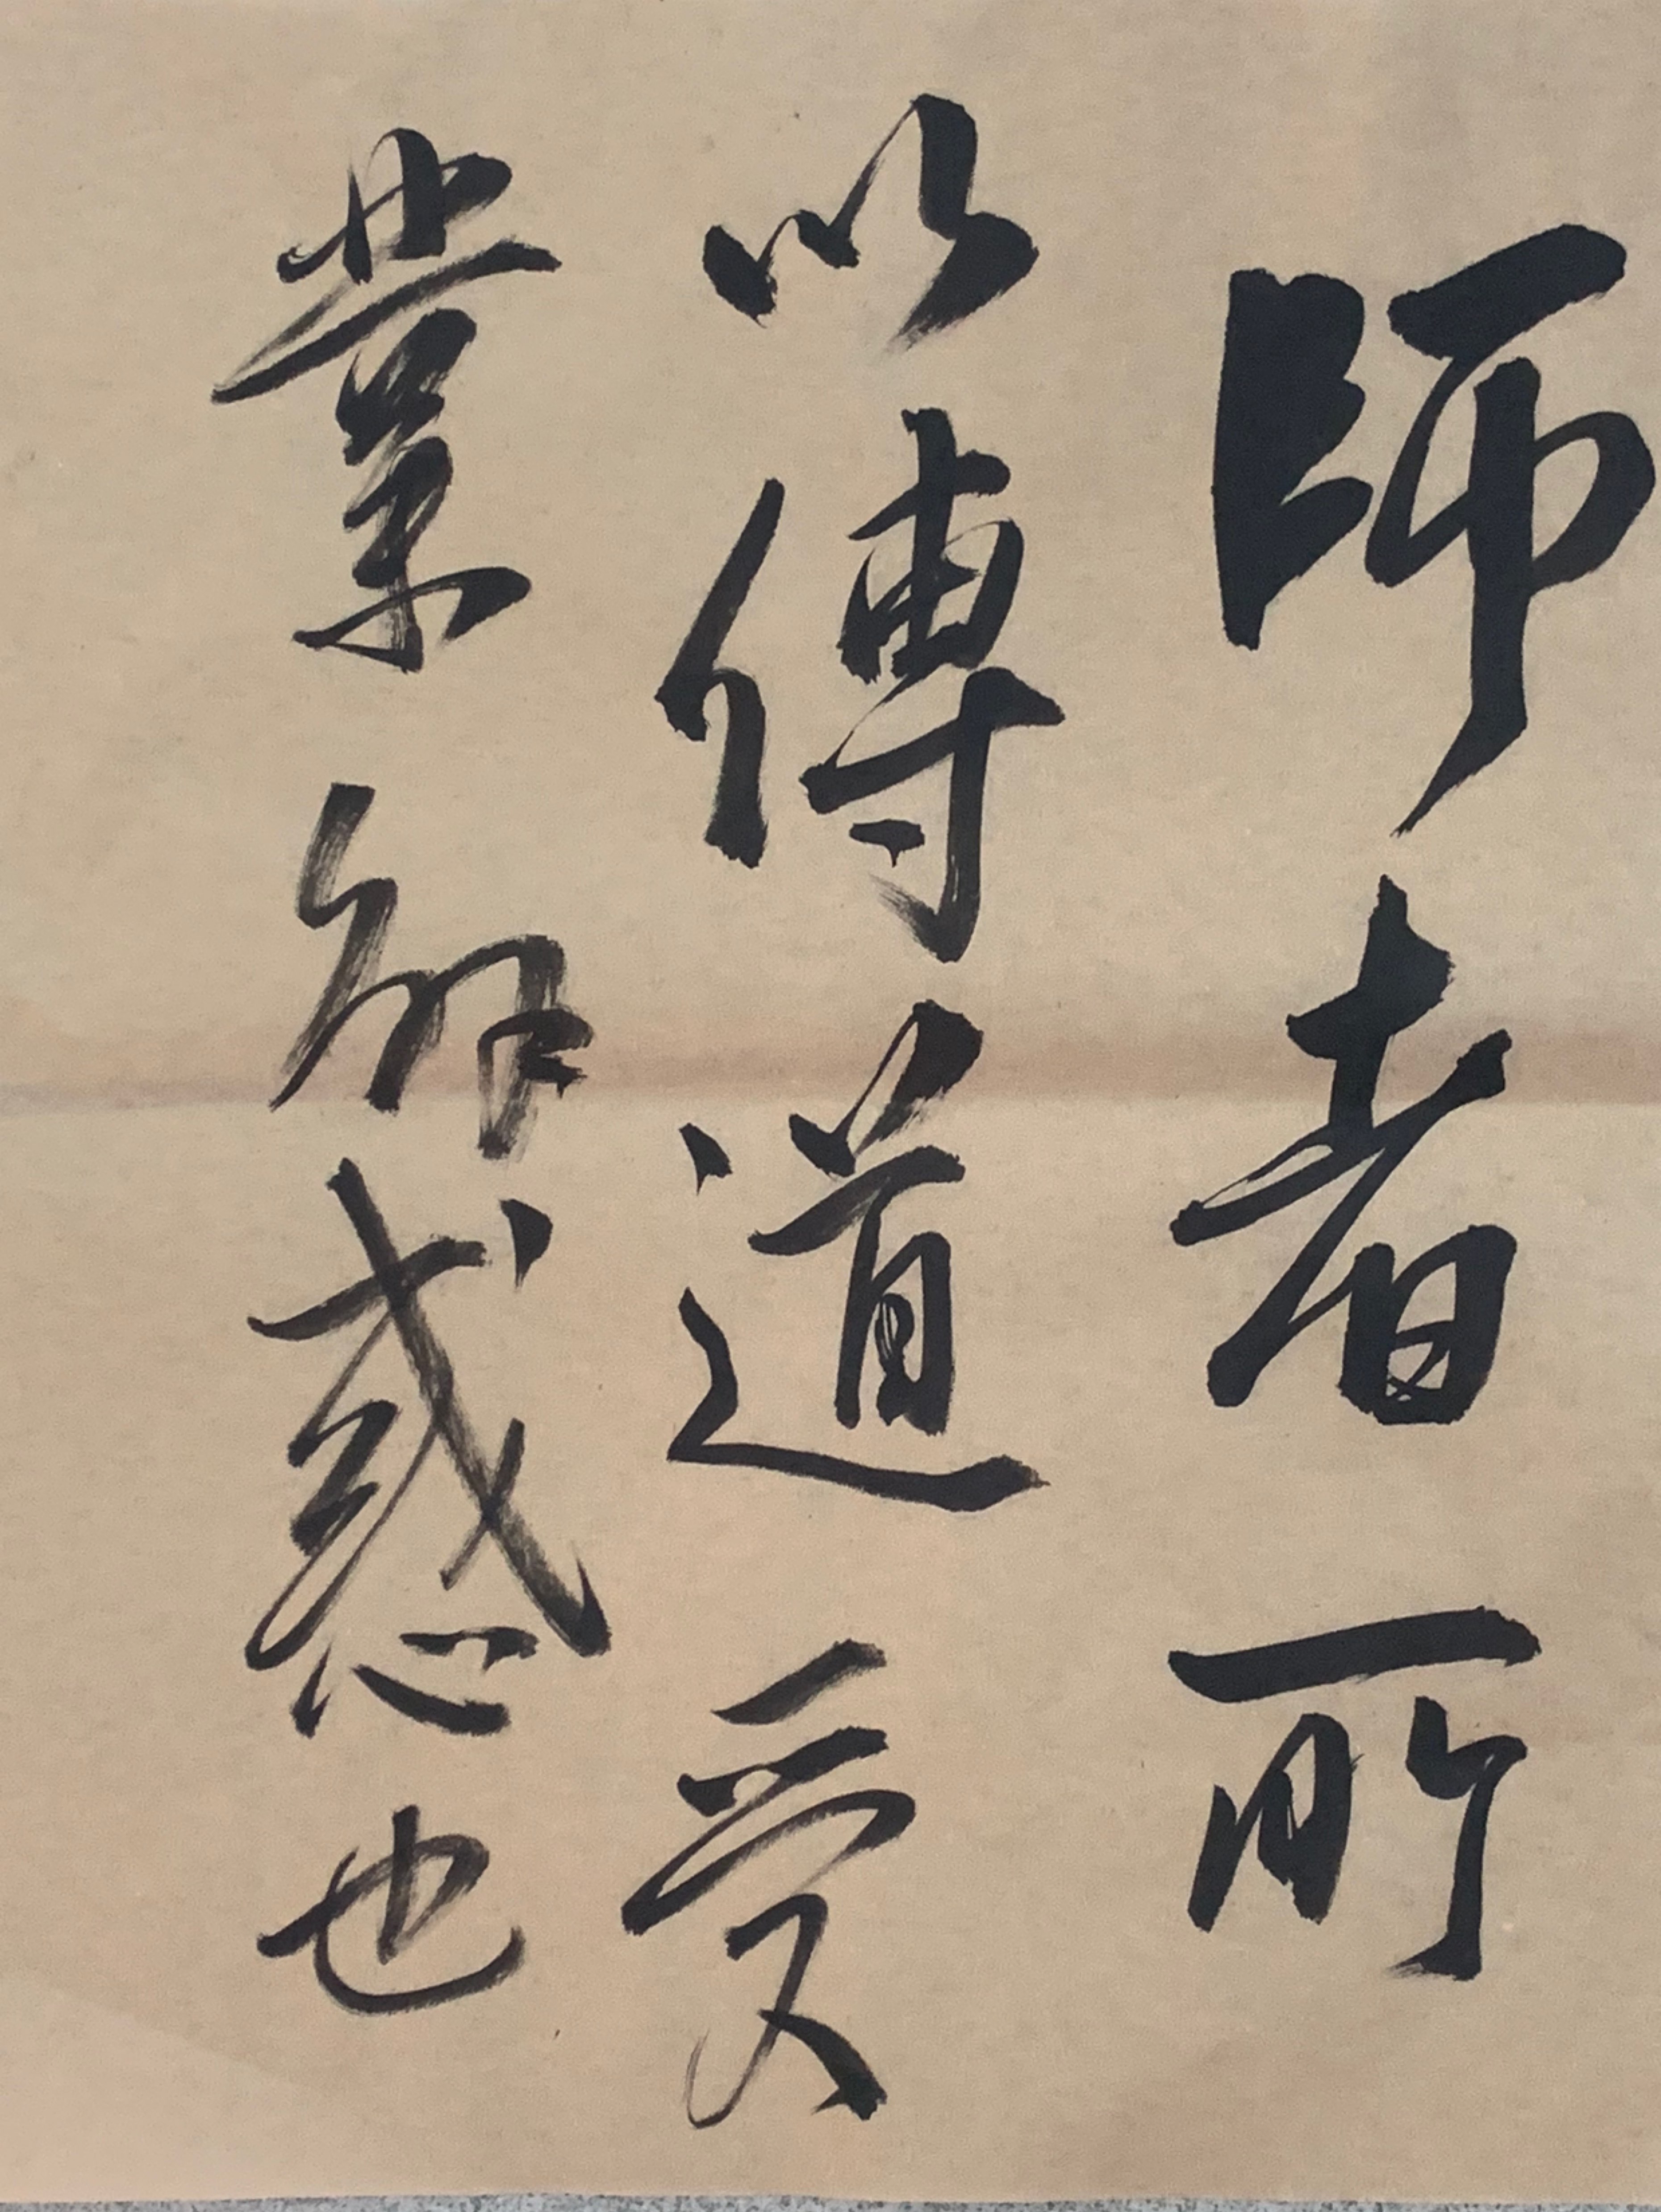 師者所
以傳道受
業解惑也